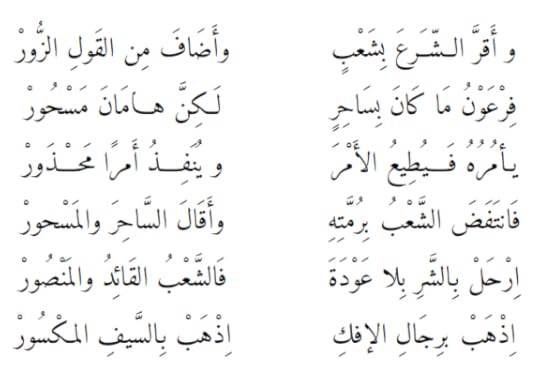 و أَقرَّ الـشَّـرعَ بِشَعْبٍ وأَضَافَ مِن القَولِ الزُّورْ
فِرْعَوْنُ مَا كَانَ بِسَاحِرٍ لَـكِنَّ هـامَانَ مَسْحُورْ
يـأمُرُهُ فَـيُـطِيعُ الأَمْرَ و يُنَفِـذُ أَمرًا مَحْـذَورْ
فَانتَفَضَ الشَّعْبُ بِرُمَّتِهِ وأَقَالَ السَّاحِرَ والمَسْحورْ
اِرْحَلْ بِالشَّرِ بِلا عَوْدَةَ فَالشَّعْبُ القَائِدُ والمَنْصُورْ
اِذْهَبْ بِرِجَالِ الإفكِ اِذْهَبْ بِالسَّيفِ المـكْسُورْ